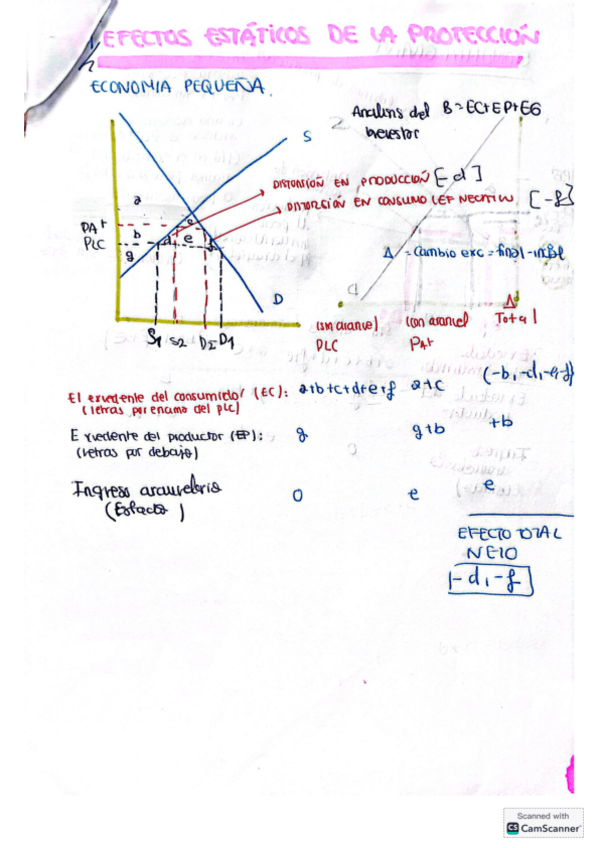 EFECTOS ESTÁTICOS DE LA PROTECCIÓN
ECONOMIA PEQUEÑA.
Analisis del B = EC+EP+EG
bienestar
S
a
DISTORSIÓN EN PRODUCCIÓN [-d]
DISTORSIÓN EN CONSUMO (EF NEGATIVO) [-f]
PA+
c
b
d
e
f
PLC
g
Δ = cambio exc = final - inicial
D
S1 S2 D2 D1
(sin arancel) (con arancel) Δ Total
PLC PA+
El excedente del consumidor (EC): a+b+c+d+e+f a+c (-b, -d, -e, -f)
(letras por encima del PLC)
Excedente del productor (EP): g g+b +b
(letras por debajo)
Ingreso arancelario 0 e e
(Estado)
EFECTO TOTAL
NETO
-d, -f
Scanned with
CS CamScanner